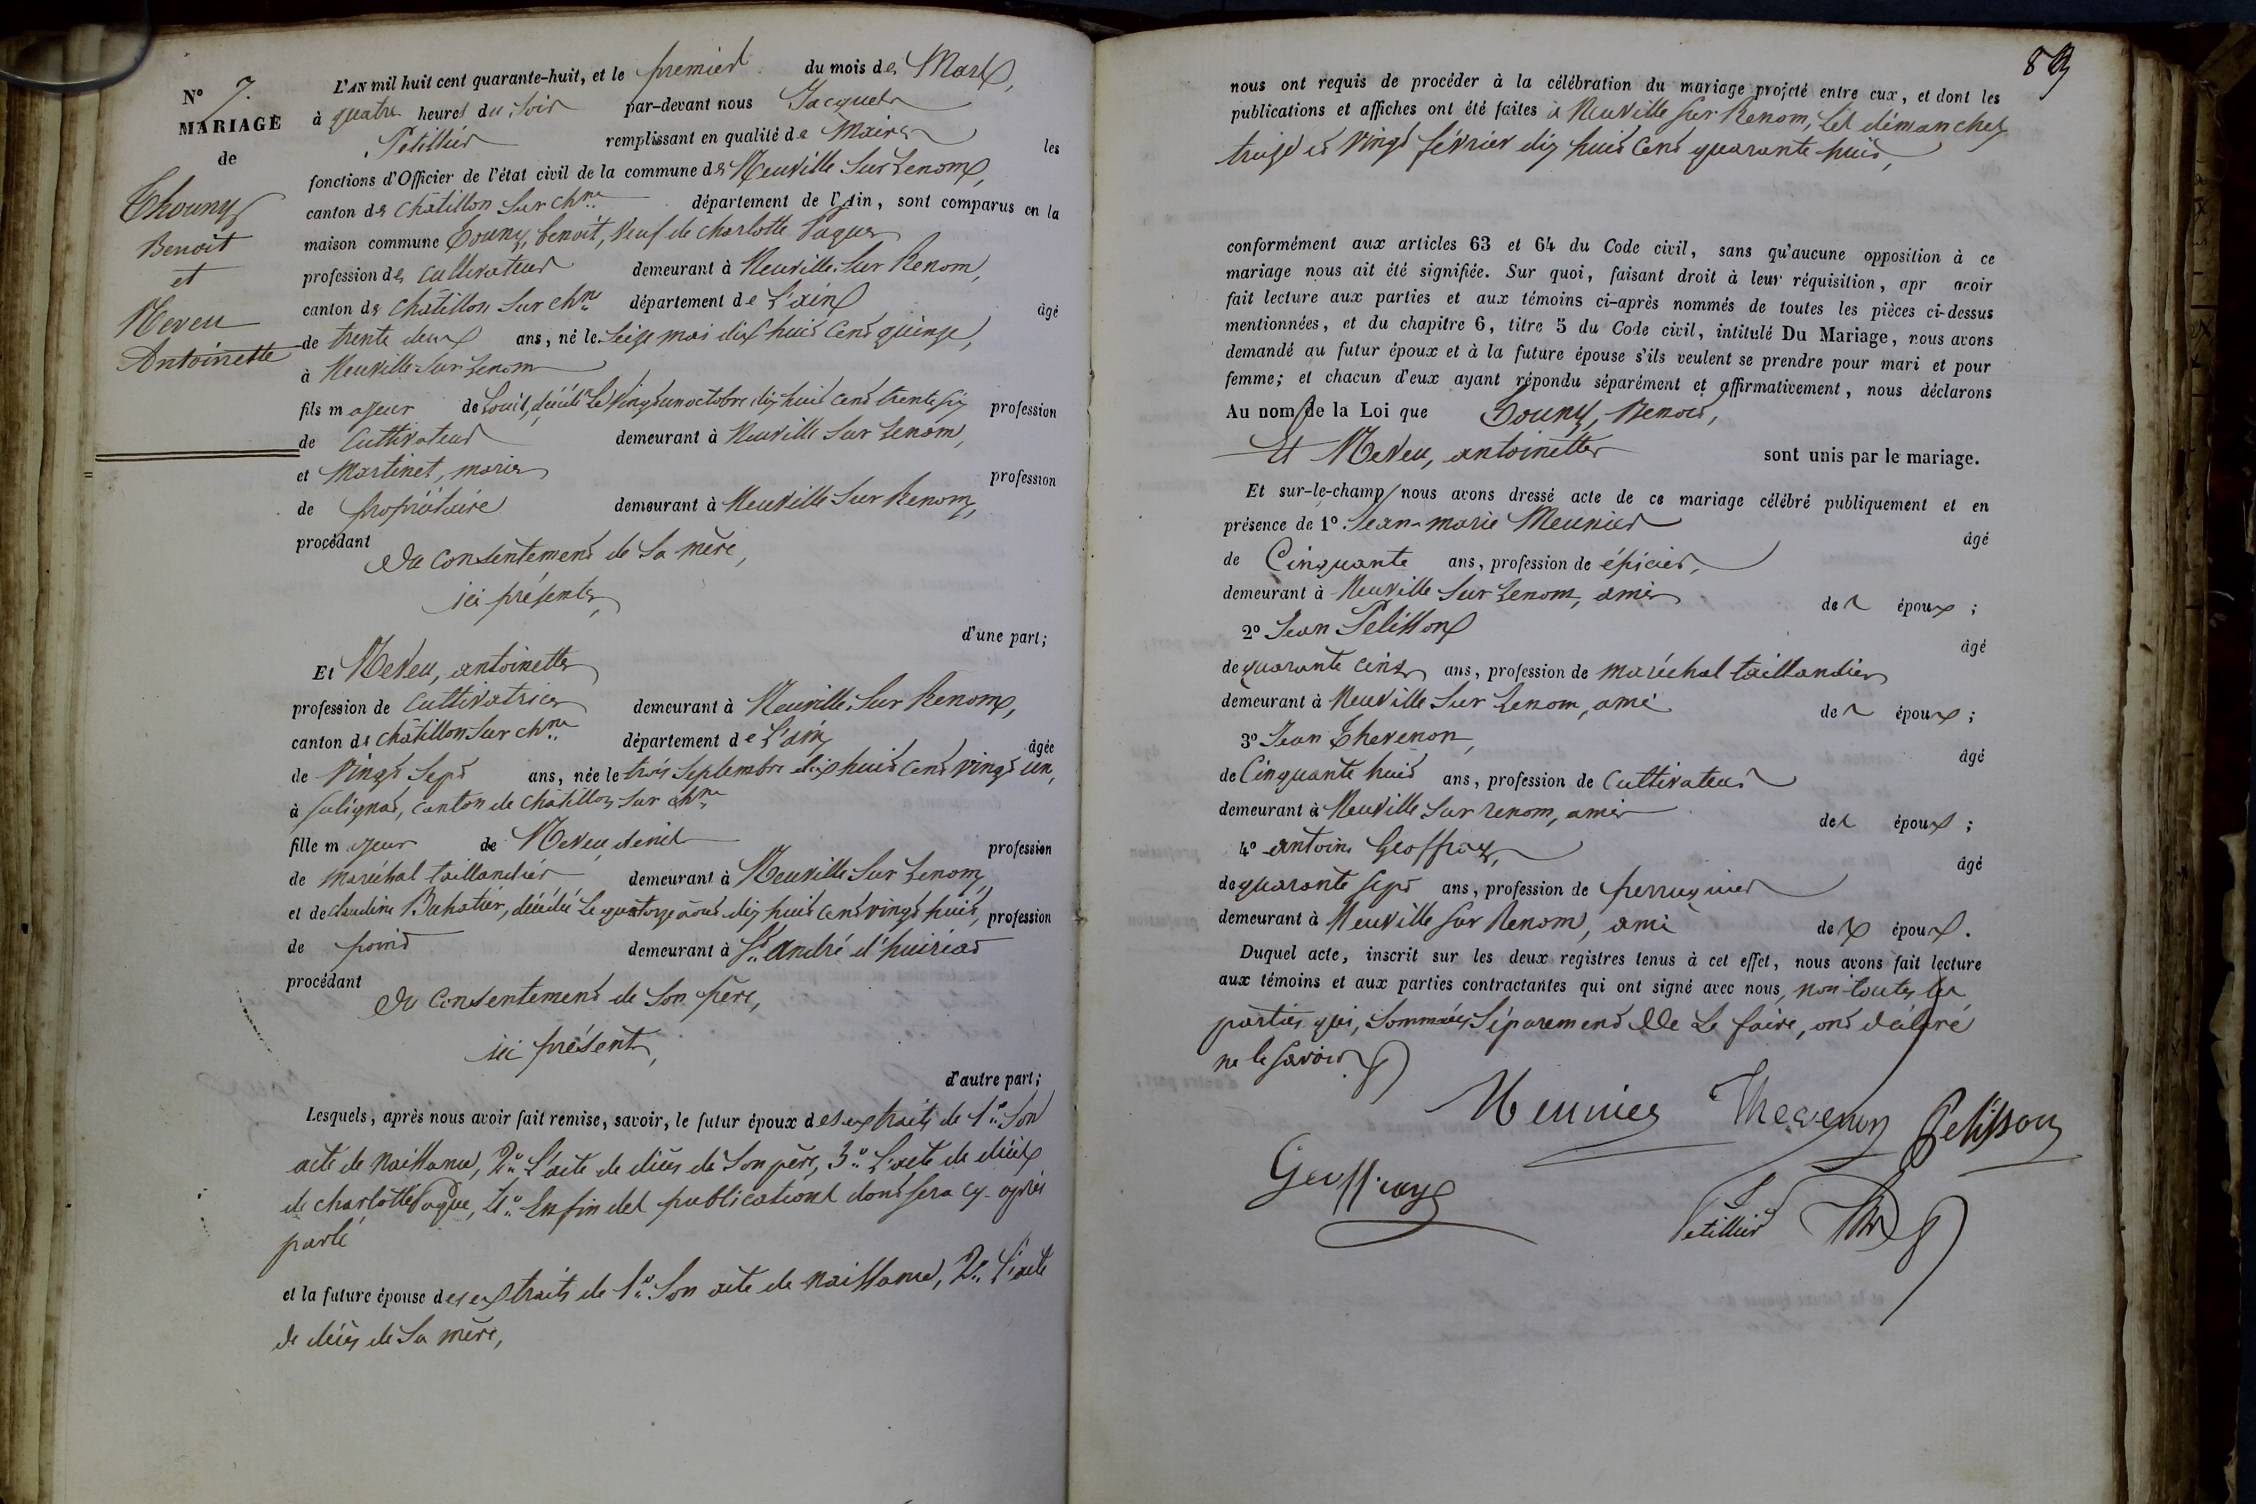 N° 7.
MARIAGE
de
Thouny
Benoit
et
Neveu
Antoinette
L'AN mil huit cent quarante-huit, et le premier du mois de Mars,
à quatre heures du soir par-devant nous Jacques
Petillier remplissant en qualité de Maire les
fonctions d'Officier de l'état civil de la commune de Neuville Sur Renom,
canton de Châtillon Sur Chne département de l'Ain, sont comparus en la
maison commune Touny, benoit, veuf de charlotte Pague
profession de cultivateur demeurant à Neuville Sur Renom,
canton de Châtillon Sur Chne département de L'ain âgé
de trente deux ans, né le Seize mai dix huit cent quinze,
à Neuville Sur Renom
fils majeur de Louis, décédé Le vingt un octobre dix huit cent trente six profession
de Cultivateur demeurant à Neuville Sur Renom,
et Martinet, marie profession
de propriétaire demeurant à Neuville Sur Renom,
procédant
du consentement de Sa mère,
ici présente,
d'une part;
Et Neveu, antoinette
profession de Cultivatrice demeurant à Neuville Sur Renom,
canton de Châtillon Sur Chne département de L'ain, âgée
de vingt Sept ans, née le trois Septembre dix huit cent vingt un,
à Sulignat, canton de Châtillon Sur Chne
fille majeur de Neveu, denis profession
de maréchal taillandier demeurant à Neuville Sur Renom,
et de claudine Buhatier, décédée Le quatorze août dix huit cent vingt huit, profession
de point demeurant à St andré d'huiriat
procédant
du Consentement de Son père,
ici présent,
d'autre part;
Lesquels, après nous avoir fait remise, savoir, le futur époux des extraits de 1° Son
acte de naissance, 2° L'acte de décès de Son père, 3° L'acte de décès
de charlotte Pague, 4° Enfin des publications dont sera cy-après
parlé
et la future épouse des extraits de 1° Son acte de naissance, 2° L'acte
de décès de Sa mère,
nous ont requis de procéder à la célébration du mariage projeté entre eux, et dont les
publications et affiches ont été faites à Neuville Sur Renom, les dimanches
treize et vingt février dix huit cent quarante huit,
conformément aux articles 63 et 64 du Code civil, sans qu'aucune opposition à ce
mariage nous ait été signifiée. Sur quoi, faisant droit à leur réquisition, apr avoir
fait lecture aux parties et aux témoins ci-après nommés de toutes les pièces ci-dessus
mentionnées, et du chapitre 6, titre 5 du Code civil, intitulé Du Mariage, nous avons
demandé au futur époux et à la future épouse s'ils veulent se prendre pour mari et pour
femme; et chacun d'eux ayant répondu séparément et affirmativement, nous déclarons
Au nom de la Loi que Touny, Benoit,
Et Neveu, antoinette sont unis par le mariage.
Et sur-le-champ nous avons dressé acte de ce mariage célébré publiquement et en
présence de 1° Jean-marie Meunier âgé
de Cinquante ans, profession de épicier,
demeurant à Neuville Sur Renom, ami des époux;
2° Jean Pelisson âgé
de quarante cinq ans, profession de maréchal taillandier
demeurant à Neuville Sur Renom, ami des époux;
3° Jean Thevenon, âgé
de Cinquante huit ans, profession de Cultivateur
demeurant à Neuville Sur renom, ami des époux;
4° antoine Geoffray, âgé
de quarante Sept ans, profession de perruquier
demeurant à Neuville Sur Renom, ami des époux.
Duquel acte, inscrit sur les deux registres tenus à cet effet, nous avons fait lecture
aux témoins et aux parties contractantes qui ont signé avec nous, non toutes les
parties qui, Sommées Séparement de Le faire, ont déclaré
ne le savoir
Meunier Thevenon Pelisson
Geoffray
Petillier